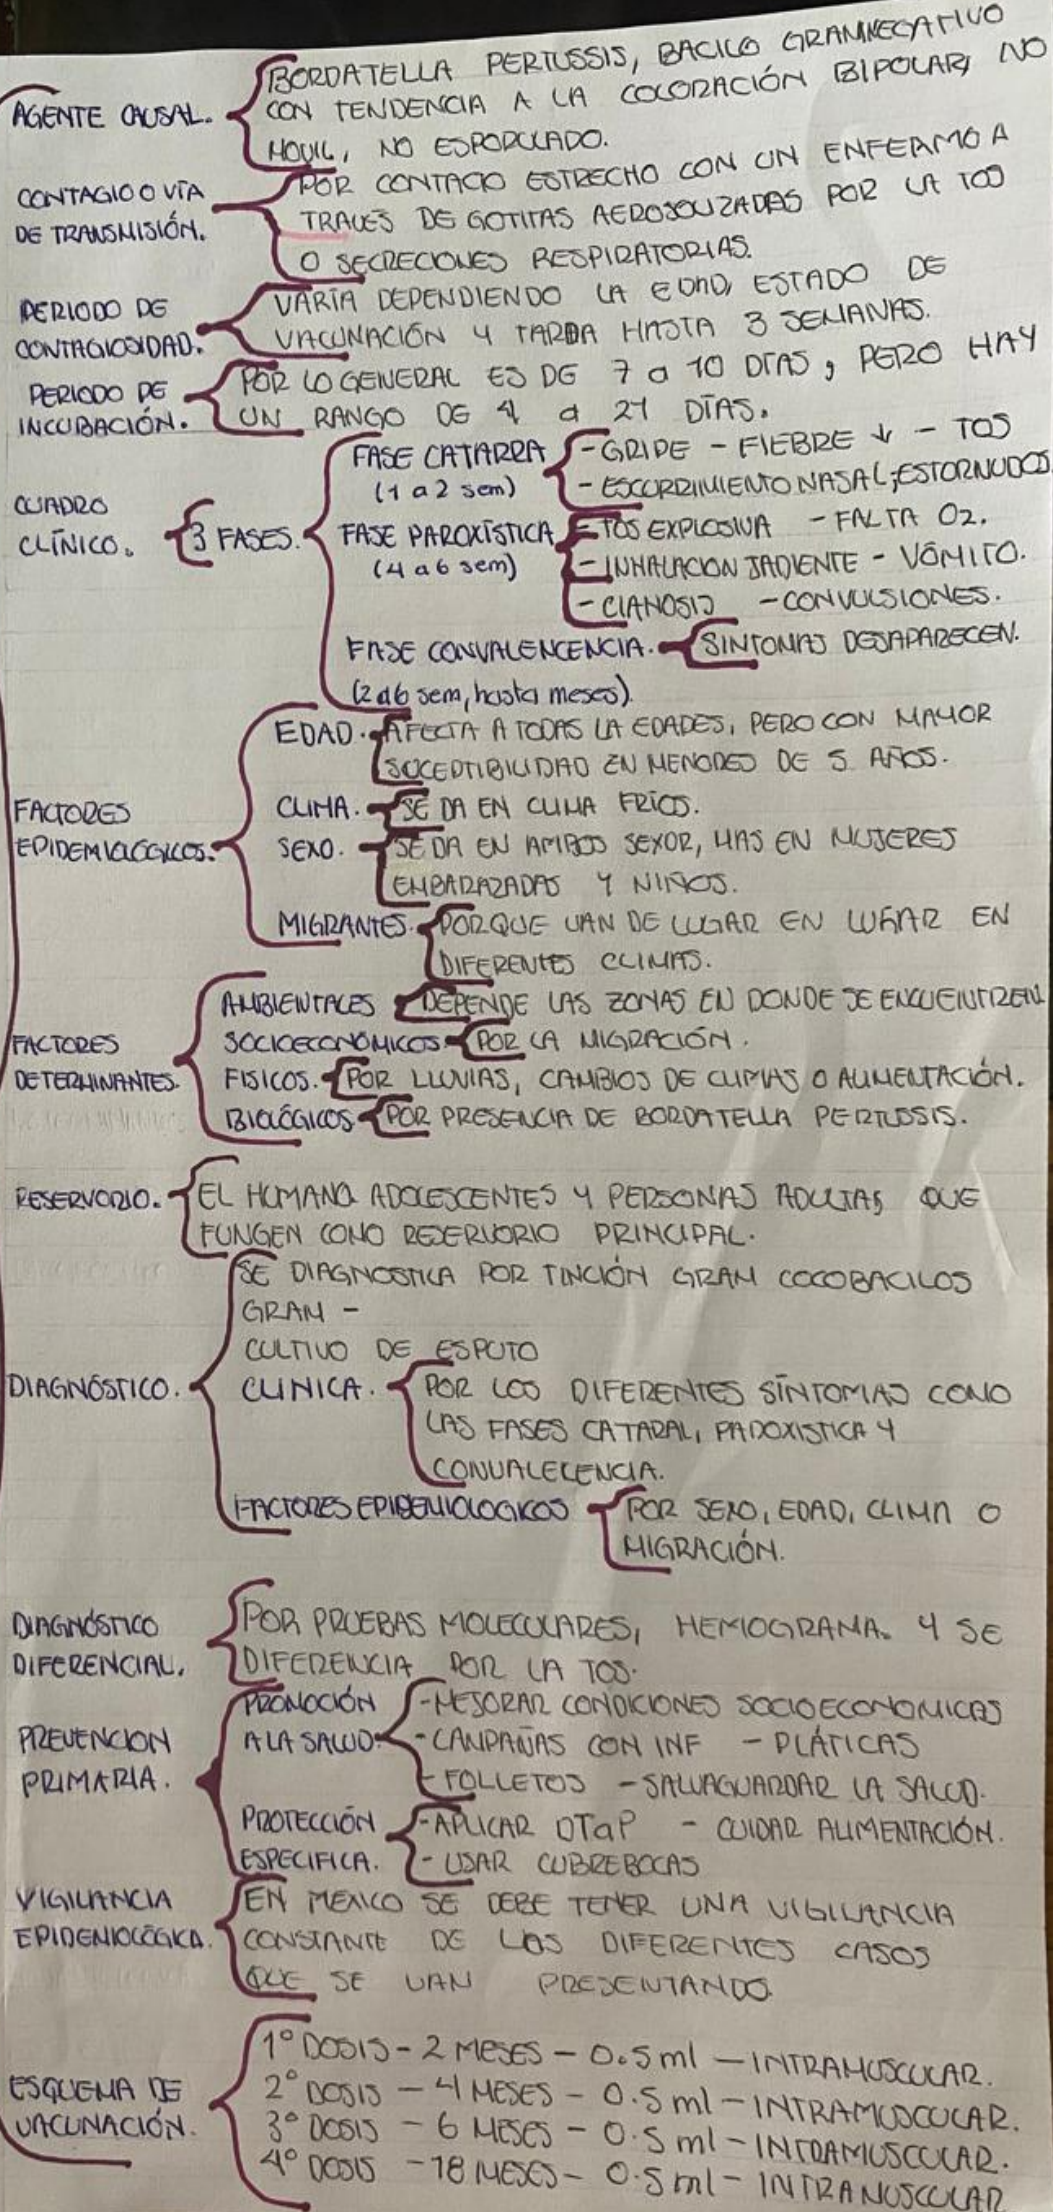 AGENTE CAUSAL.
BORDATELLA PERTUSSIS, BACILO GRAMNEGATIVO
CON TENDENCIA A LA COLORACIÓN BIPOLAR, NO
MOVIL, NO ESPORULADO.
CONTAGIO O VÍA
DE TRANSMISIÓN.
POR CONTACTO ESTRECHO CON UN ENFERMO A
TRAVES DE GOTITAS AEROSOLIZADAS POR LA TOS
O SECRECIONES RESPIRATORIAS.
PERIODO DE
CONTAGIOSIDAD.
VARÍA DEPENDIENDO LA EDAD, ESTADO DE
VACUNACIÓN Y TARDA HASTA 3 SEMANAS.
PERIODO DE
INCUBACIÓN.
POR LO GENERAL ES DE 7 a 10 DÍAS, PERO HAY
UN RANGO DE 4 a 21 DÍAS.
CUADRO
CLÍNICO.
3 FASES.
FASE CATARRA
(1 a 2 sem)
- GRIPE - FIEBRE ↓ - TOS
- ESCURRIMIENTO NASAL; ESTORNUDOS
FASE PAROXÍSTICA
(4 a 6 sem)
- TOS EXPLOSIVA - FALTA O2.
- INHALACION JADIENTE - VÓMITO.
- CIANOSIS - CONVULSIONES.
FASE CONVALENCENCIA.
(2 a 6 sem, hasta meses).
SINTOMAS DESAPARECEN.
FACTORES
EPIDEMIOLÓGICOS.
EDAD.
AFECTA A TODAS LA EDADES, PERO CON MAYOR
SUCEPTIBILIDAD EN MENORES DE 5 AÑOS.
CLIMA.
SE DA EN CLIMA FRÍOS.
SEXO.
SE DA EN AMBOS SEXOR, MAS EN MUJERES
EMBARAZADAS Y NIÑOS.
MIGRANTES.
PORQUE VAN DE LUGAR EN LUGAR EN
DIFERENTES CLIMAS.
FACTORES
DETERMINANTES.
AMBIENTALES
DEPENDE LAS ZONAS EN DONDE SE ENCUENTREN
SOCIOECONÓMICOS
POR LA MIGRACIÓN.
FISICOS.
POR LLUVIAS, CAMBIOS DE CLIMAS O ALIMENTACIÓN.
BIOLÓGICOS
POR PRESENCIA DE BORDATELLA PERTUSSIS.
RESERVORIO.
EL HUMANO. ADOLESCENTES Y PERSONAS ADULTAS QUE
FUNGEN COMO RESERVORIO PRINCIPAL.
DIAGNÓSTICO.
SE DIAGNOSTICA POR TINCIÓN GRAM COCOBACILOS
GRAM -
CULTIVO DE ESPUTO
CLINICA.
POR LOS DIFERENTES SÍNTOMAS COMO
LAS FASES CATARAL, PAROXISTICA Y
CONVALECENCIA.
FACTORES EPIDEMIOLOGICOS
POR SEXO, EDAD, CLIMA O
MIGRACIÓN.
DIAGNÓSTICO
DIFERENCIAL.
POR PRUEBAS MOLECULARES, HEMOGRAMA. Y SE
DIFERENCIA POR LA TOS.
PREVENCION
PRIMARIA.
PROMOCIÓN
A LA SALUD.
- MEJORAR CONDICIONES SOCIOECONOMICAS
- CAMPAÑAS CON INF - PLÁTICAS
- FOLLETOS - SALVAGUARDAR LA SALUD.
PROTECCIÓN
ESPECIFICA.
- APLICAR DTaP - CUIDAR ALIMENTACIÓN.
- USAR CUBREBOCAS
VIGILANCIA
EPIDEMIOLÓGICA.
EN MEXICO SE DEBE TENER UNA VIGILANCIA
CONSTANTE DE LOS DIFERENTES CASOS
QUE SE VAN PRESENTANDO.
ESQUEMA DE
VACUNACIÓN.
1° DOSIS - 2 MESES - 0.5 ml - INTRAMUSCULAR.
2° DOSIS - 4 MESES - 0.5 ml - INTRAMUSCULAR.
3° DOSIS - 6 MESES - 0.5 ml - INTRAMUSCULAR.
4° DOSIS - 18 MESES - 0.5 ml - INTRAMUSCULAR